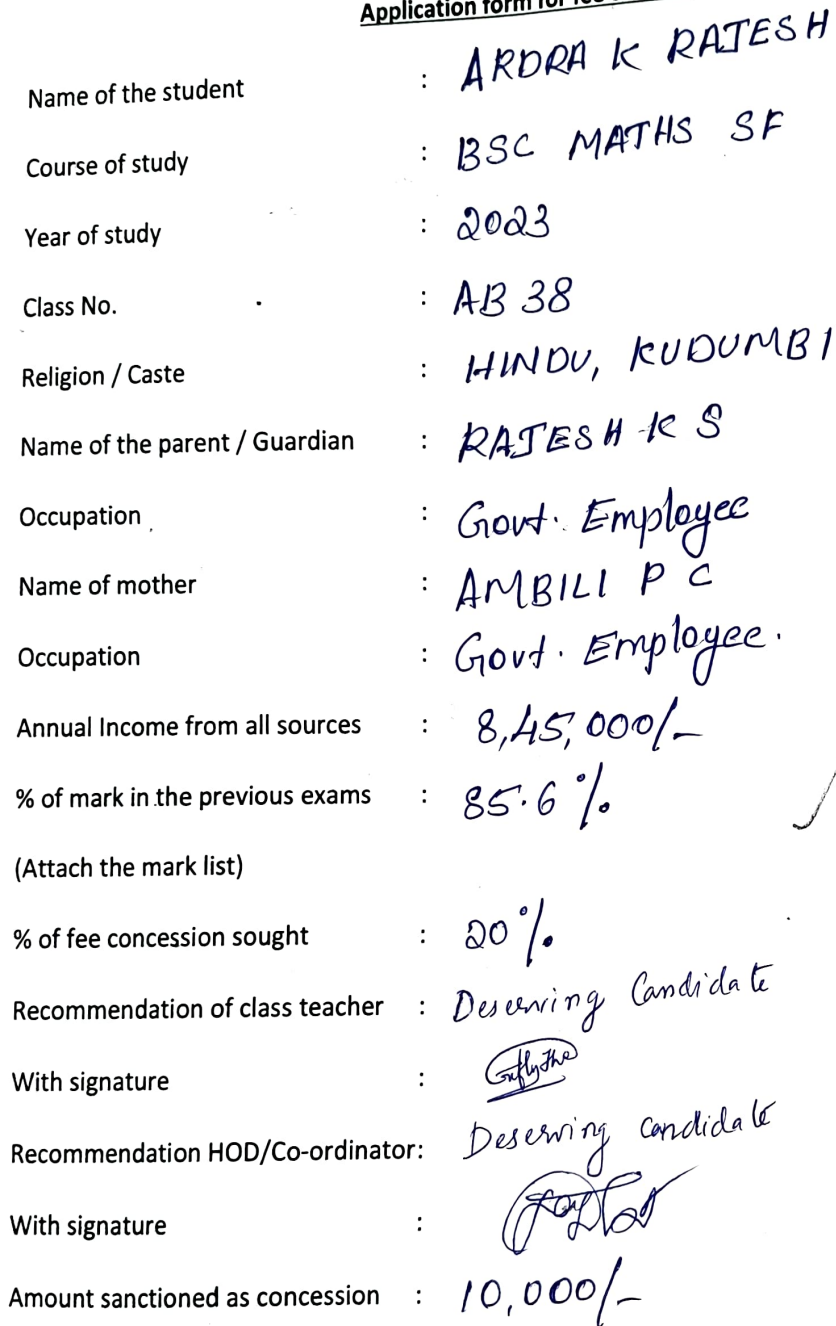 Application form for
Name of the student : ARDRA K RAJESH
Course of study : BSC MATHS SF
Year of study : 2023
Class No. : AB 38
Religion / Caste : HINDU, KUDUMBI
Name of the parent / Guardian : RAJESH K S
Occupation : Govt. Employee
Name of mother : AMBILI P C
Occupation : Govt. Employee.
Annual Income from all sources : 8,45,000/-
% of mark in the previous exams : 85.6 %
(Attach the mark list)
% of fee concession sought : 20 %
Recommendation of class teacher : Deserving Candidate
With signature :
Recommendation HOD/Co-ordinator: Deserving candidate
With signature :
Amount sanctioned as concession : 10,000/-